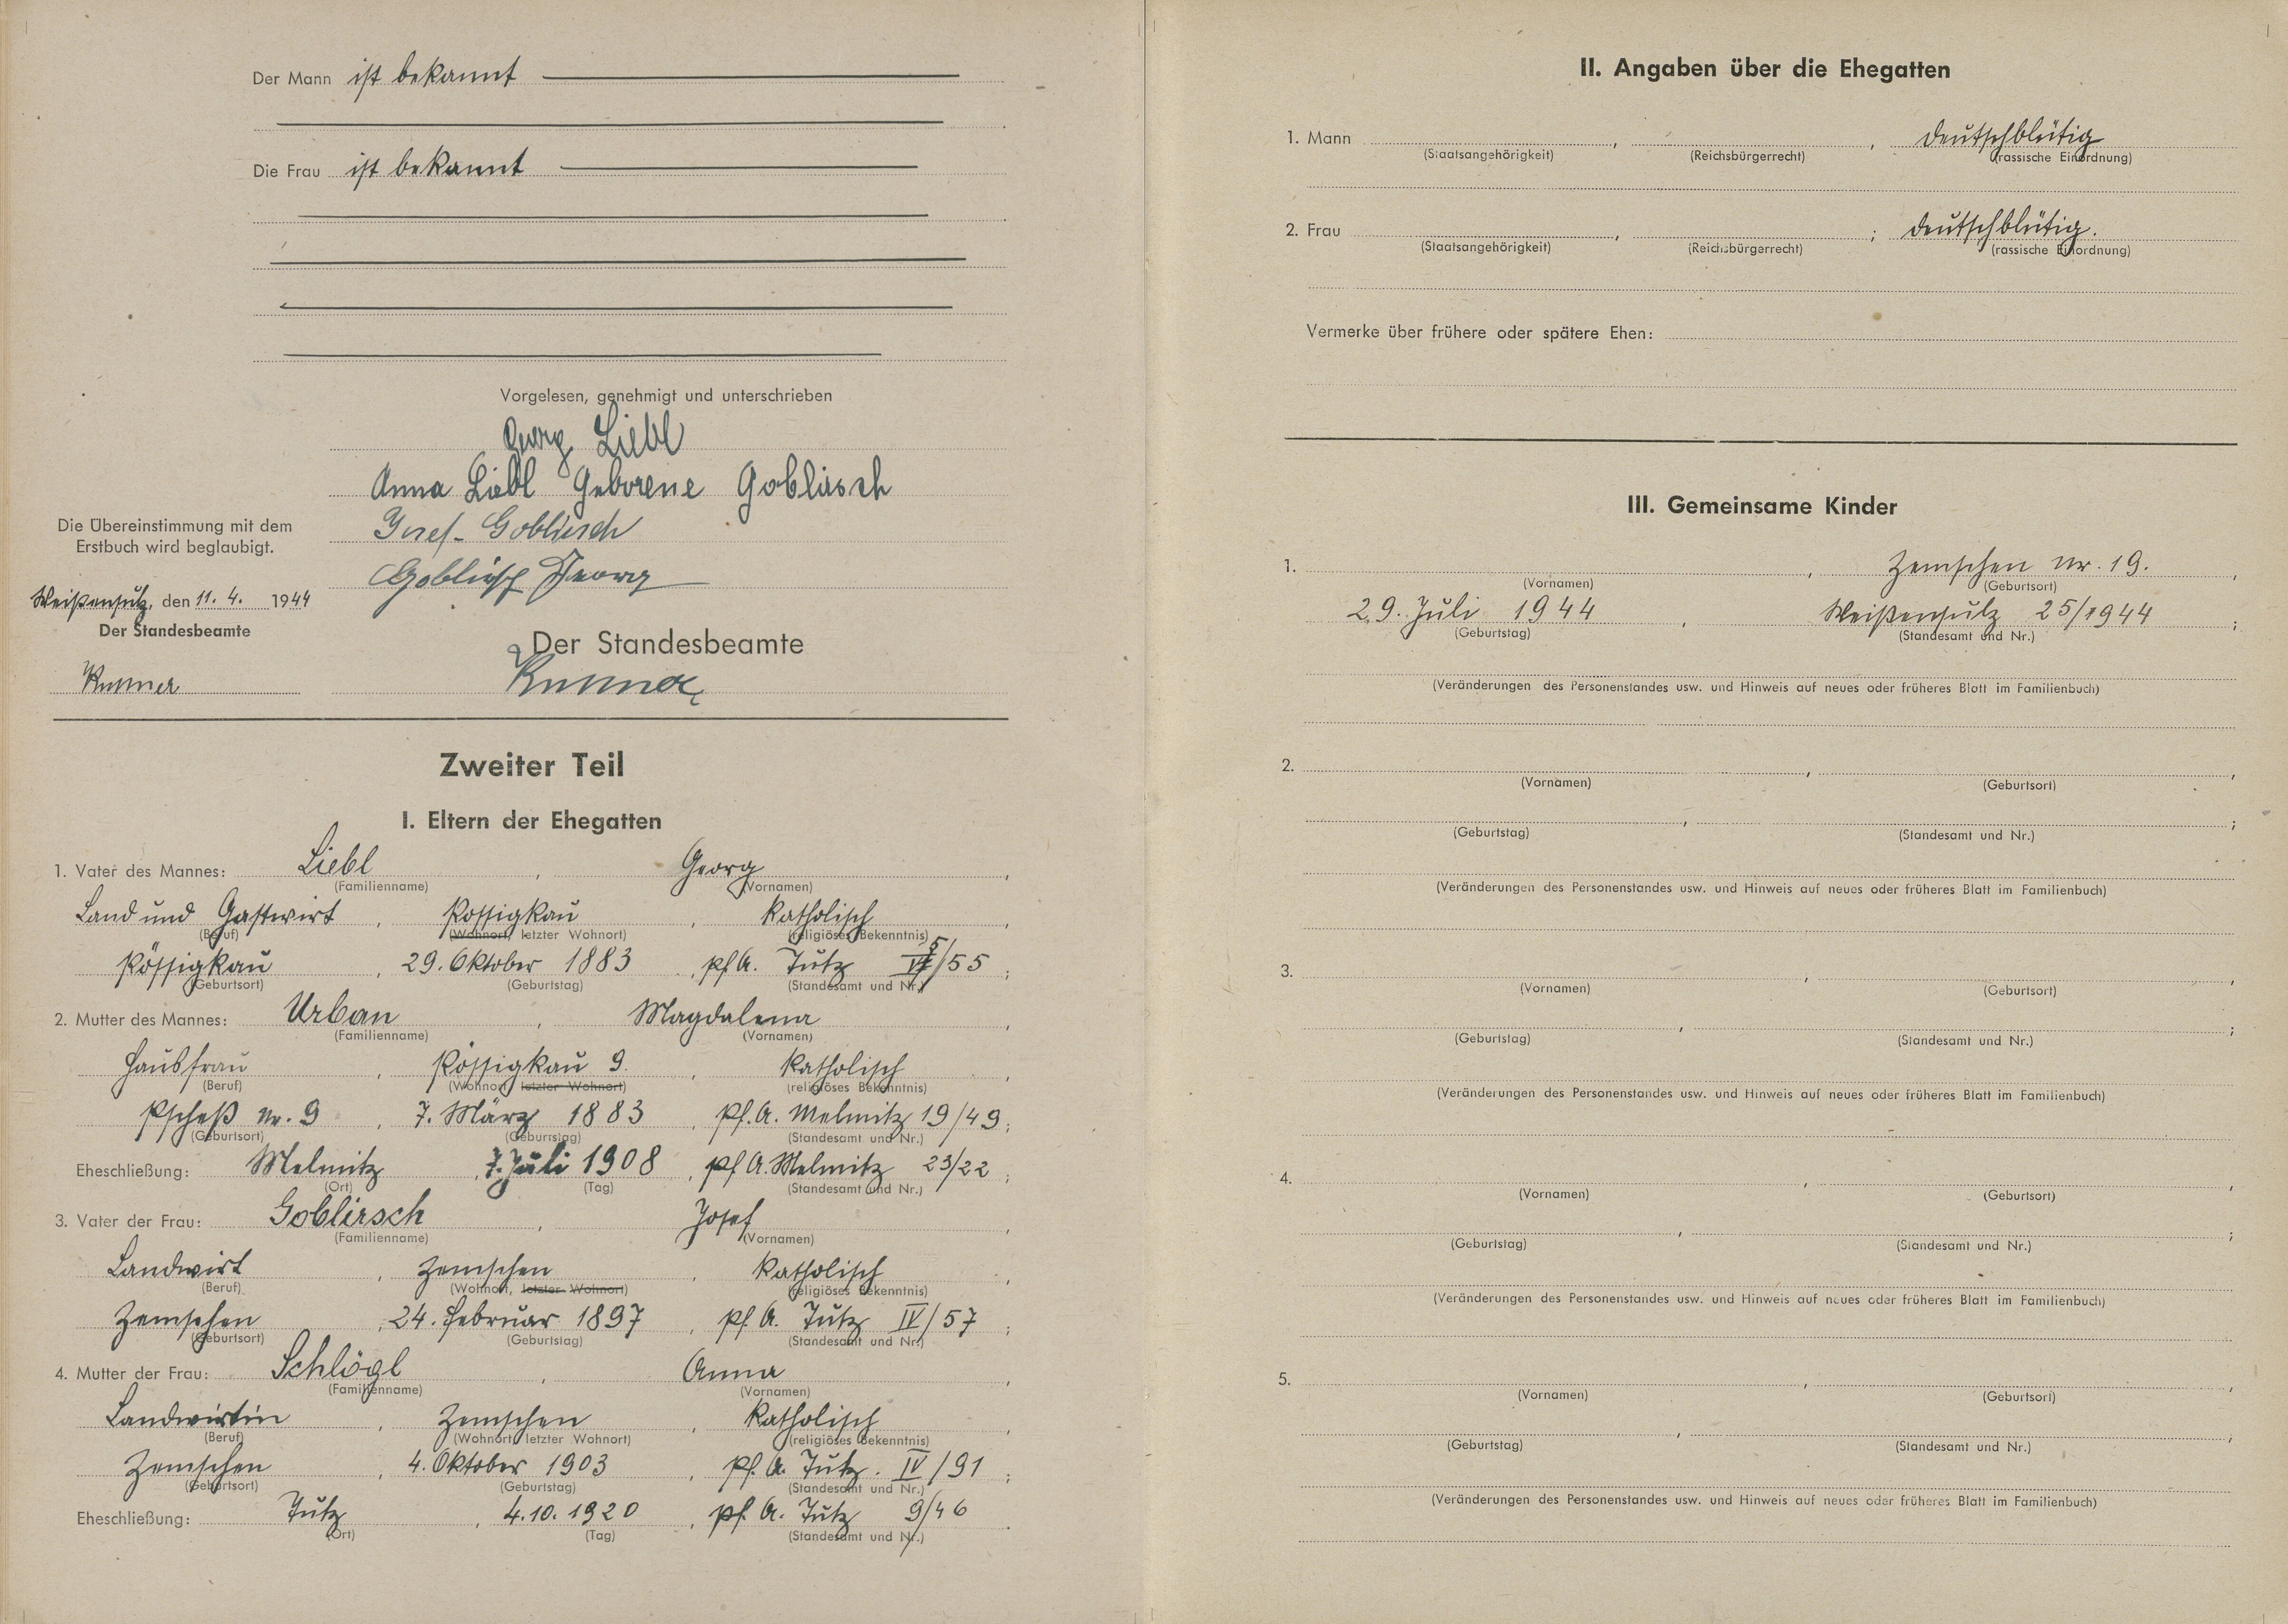 Der Mann ist bekannt
Die Frau ist bekannt
Vorgelesen, genehmigt und unterschrieben
Georg Liebl
Anna Liebl Geborene Goblirsch
Josef Goblirsch
Goblirsch Georg
Die Übereinstimmung mit dem
Erstbuch wird beglaubigt.
Weißensulz, den 11. 4. 1944
Der Standesbeamte
Der Standesbeamte
Zweiter Teil
I. Eltern der Ehegatten
1. Vater des Mannes: Liebl, Georg,
(Familienname) (Vornamen)
Land und Gastwirt, Possigkau, katholisch,
(Beruf) (Wohnort, letzter Wohnort) (religiöses Bekenntnis)
Pössigkau, 29. Oktober 1883, Pf. A. Tutz /55;
(Geburtsort) (Geburtstag) (Standesamt und Nr.)
2. Mutter des Mannes: Urban, Magdalena,
(Familienname) (Vornamen)
Hausfrau, Pössigkau 9., katholisch,
(Beruf) (Wohnort, letzter Wohnort) (religiöses Bekenntnis)
Pscheß Nr. 9, 7. März 1883, Pf. A. Melmitz 19/49;
(Geburtsort) (Geburtstag) (Standesamt und Nr.)
Eheschließung: Melmitz, 7. Juli 1908, Pf A. Melmitz 23/22;
(Ort) (Tag) (Standesamt und Nr.)
3. Vater der Frau: Goblirsch, Josef,
(Familienname) (Vornamen)
Landwirt, Zemschen, katholisch,
(Beruf) (Wohnort, letzter Wohnort) (religiöses Bekenntnis)
Zemschen, 24. Februar 1897, Pf. A. Tutz IV/57;
(Geburtsort) (Geburtstag) (Standesamt und Nr.)
4. Mutter der Frau: Schlögl, Anna,
(Familienname) (Vornamen)
Landwirtin, Zemschen, katholisch,
(Beruf) (Wohnort, letzter Wohnort) (religiöses Bekenntnis)
Zemschen, 4. Oktober 1903, Pf. A. Tutz. IV/91;
(Geburtsort) (Geburtstag) (Standesamt und Nr.)
Eheschließung: Tutz, 4. 10. 1920, Pf. A. Tutz 9/46.
(Ort) (Tag) (Standesamt und Nr.)
II. Angaben über die Ehegatten
1. Mann , , deutschblütig
(Staatsangehörigkeit) (Reichsbürgerrecht) (rassische Einordnung)
2. Frau , ; deutschblütig.
(Staatsangehörigkeit) (Reichsbürgerrecht) (rassische Einordnung)
Vermerke über frühere oder spätere Ehen:
III. Gemeinsame Kinder
1. , Zemschen Nr. 19.,
(Vornamen) (Geburtsort)
29. Juli 1944, Weißensulz 25/1944;
(Geburtstag) (Standesamt und Nr.)
(Veränderungen des Personenstandes usw. und Hinweis auf neues oder früheres Blatt im Familienbuch)
2. , ,
(Vornamen) (Geburtsort)
, ;
(Geburtstag) (Standesamt und Nr.)
(Veränderungen des Personenstandes usw. und Hinweis auf neues oder früheres Blatt im Familienbuch)
3. , ,
(Vornamen) (Geburtsort)
, ;
(Geburtstag) (Standesamt und Nr.)
(Veränderungen des Personenstandes usw. und Hinweis auf neues oder früheres Blatt im Familienbuch)
4. , ,
(Vornamen) (Geburtsort)
, ;
(Geburtstag) (Standesamt und Nr.)
(Veränderungen des Personenstandes usw. und Hinweis auf neues oder früheres Blatt im Familienbuch)
5. , ,
(Vornamen) (Geburtsort)
,
(Geburtstag) (Standesamt und Nr.)
(Veränderungen des Personenstandes usw. und Hinweis auf neues oder früheres Blatt im Familienbuch)